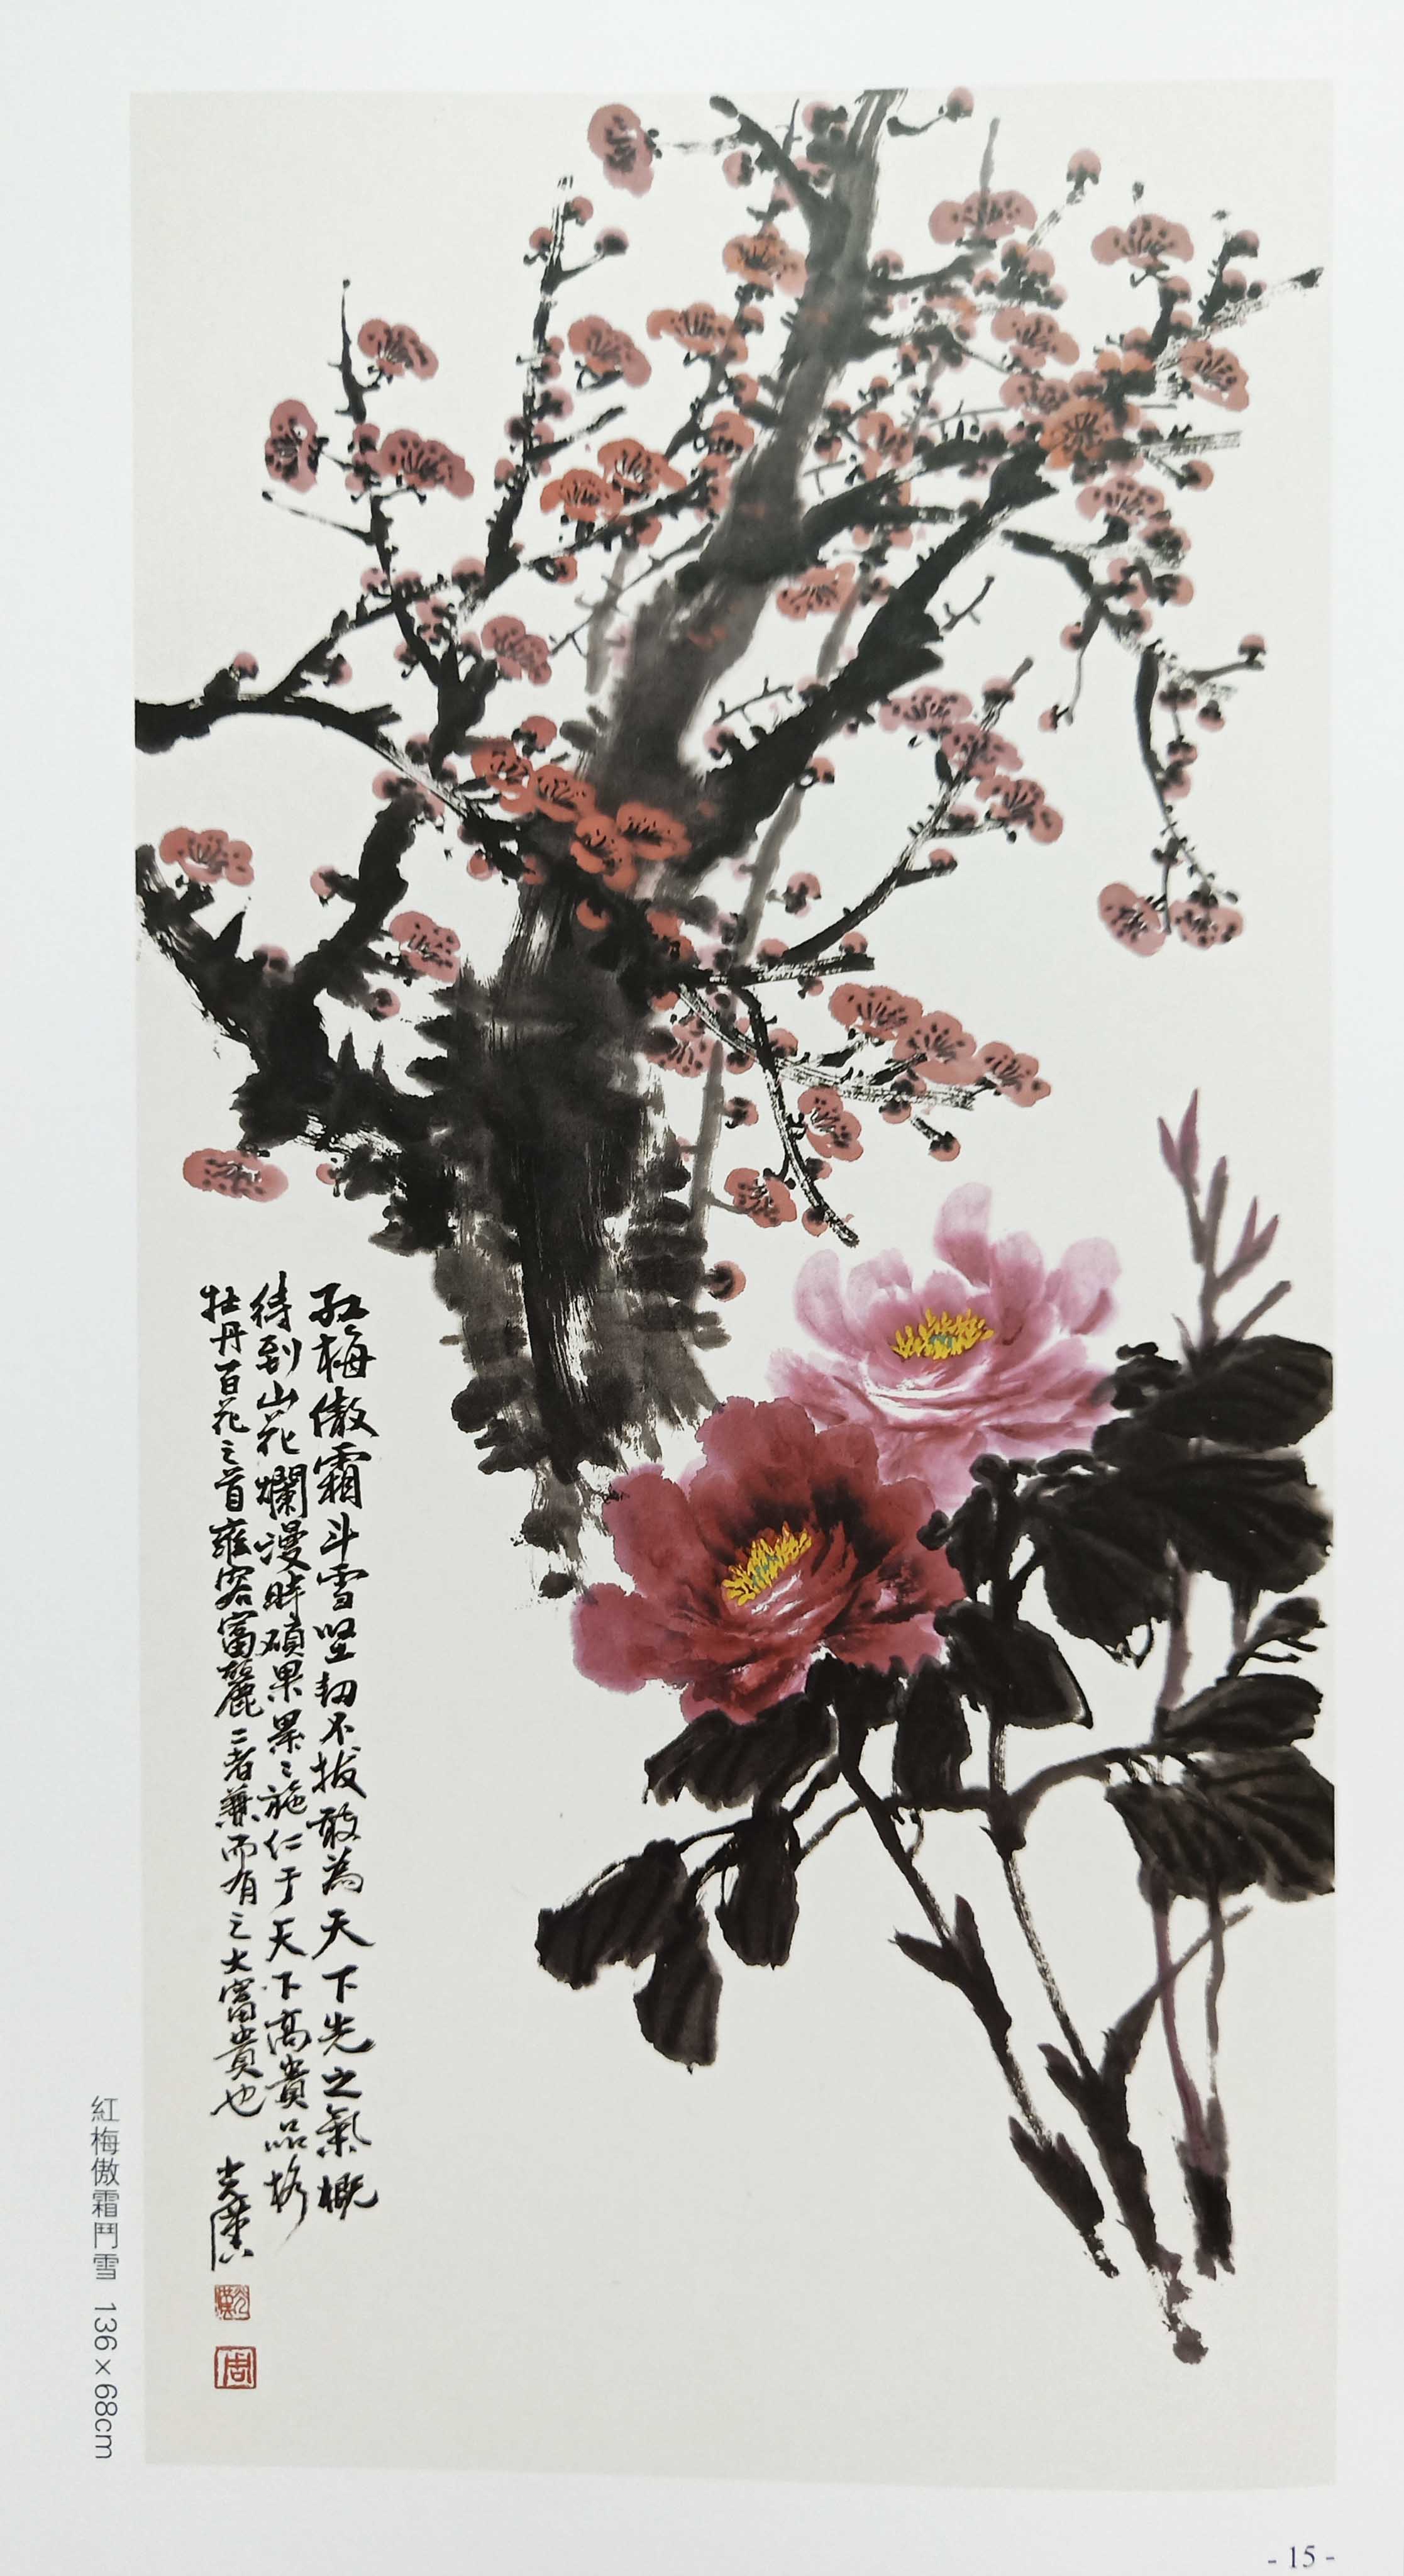 红梅傲霜斗雪坚韧不拔敢為天下先之氣概
待到山花爛漫時碩果累々施仁于天下高貴品格
牡丹百花之首雍容富麗二者兼而有之大富貴也
光漢
光漢
周
紅梅傲霜鬥雪 136×68cm
- 15 -